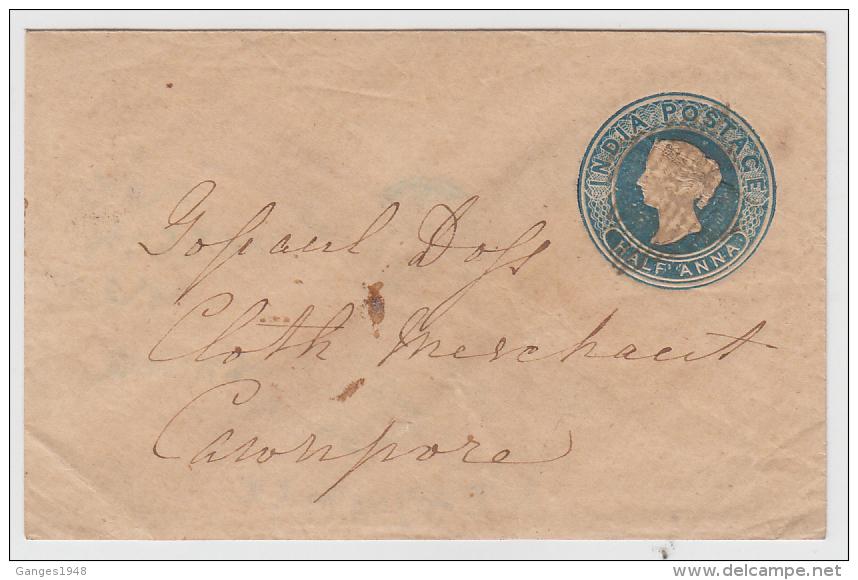 INDIA POSTAGE
HALF ANNA
Gopaul Doss
Cloth Merchant
Cawnpore
Ganges1948
delcampe.net